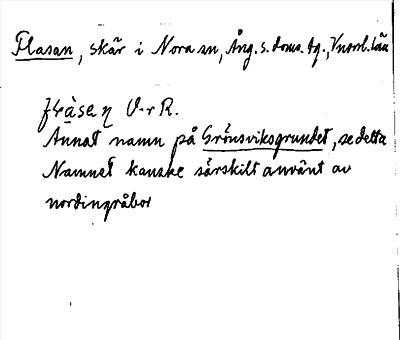 Flasan, skär i Nora sn, Ång. s. doms. tg., Vnorrl. län
Annat namn på Grönsviksgrundet, se detta
Namnet kanske särskilt använt av
nordingråbor